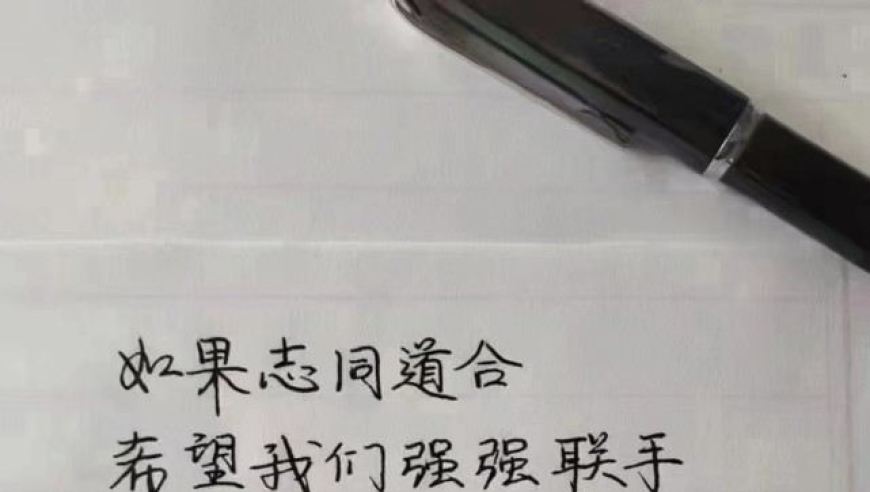 如果志同道合
希望我们强强联手